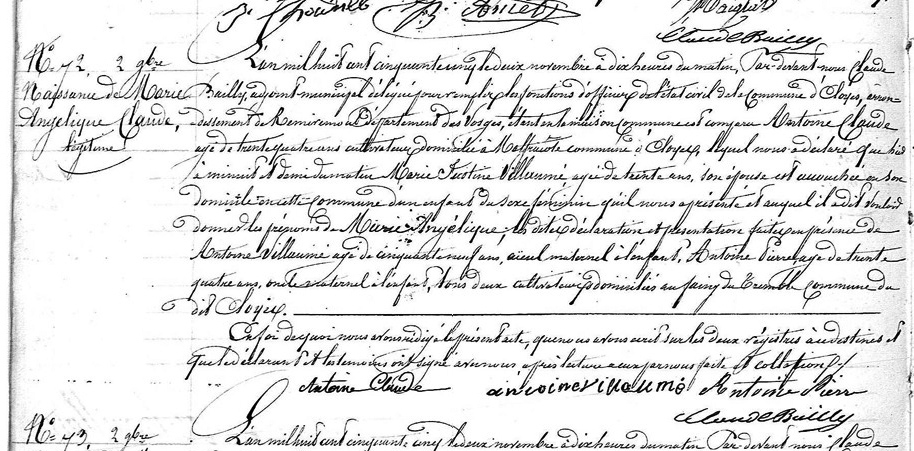 Claude Bailly
N.o 72. 2 9bre
Naissance de Marie
Angélique Claude,
légitime
L'an mil huit cent cinquante cinq le deux novembre à dix heures du matin, Par-devant nous Claude
Bailly, adjoint municipal délégué pour remplir les fonctions d'officier de l'état civil de la Commune de Cloyes, arron-
dissement de Remiremont Département des Vosges, étant en la maison commune est comparu Antoine Claude
agé de trente quatre ans cultivateur domicilié à commune de Cloyes, lequel nous a déclaré que hier
à minuit et demi du matin Marie Justine Villaumé agée de trente ans, son épouse est accouchée en son
domicile en cette commune d'un enfant du sexe féminin qu'il nous a présenté et auquel il a dit vouloir
donner les prénoms de Marie Angélique les dites déclaration et présentation faites en présence de
Antoine Villaumé agé de cinquante neuf ans, aïeul maternel à l'enfant, Antoine Pierre agé de trente
quatre ans, oncle maternel à l'enfant, tous deux cultivateurs domiciliés au faing du Tremble commune du
dit Cloyes.
En foi de quoi nous avons rédigé le présent acte, que nous avons écrit sur les deux régistres à ce destinés et
que le déclarant et les témoins ont signé avec nous après lecture a eux par nous faite et collation
Antoine Claude antoine villaumé Antoine Pierr
Claude Bailly
N.o 73. 2 9bre
L'an mil huit cent cinquante cinq le deux novembre à dix heures du matin Par-devant nous Claude